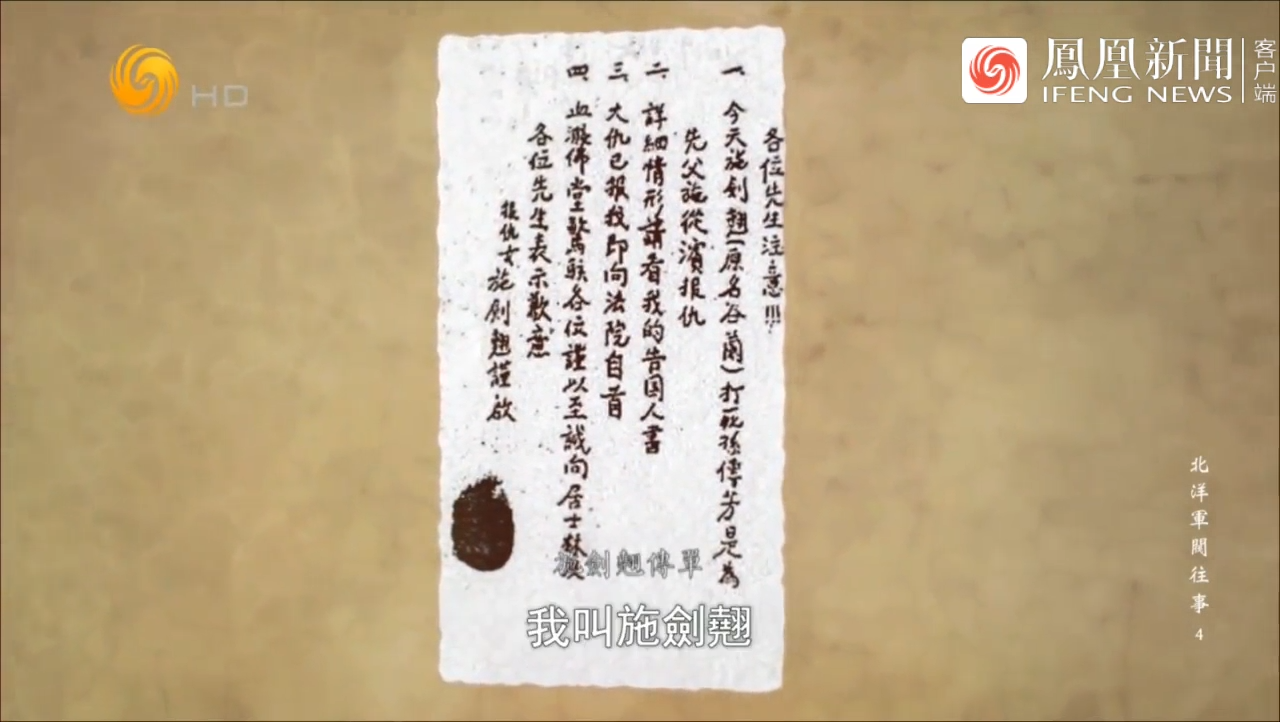 HD
鳳凰新聞
IFENG NEWS
客户端
各位先生注意!!!
一 今天施劍翹(原名谷蘭)打死孫傳芳是為
先父施從濱報仇
二 詳細情形請看我的告国人書
三 大仇已報我即向法院自首
四 血濺佛堂驚駭各位謹以至誠向居士林及
各位先生表示歉意
報仇女施劍翹謹啟
施劍翹傳單
我叫施劍翹
北洋軍閥往事 4